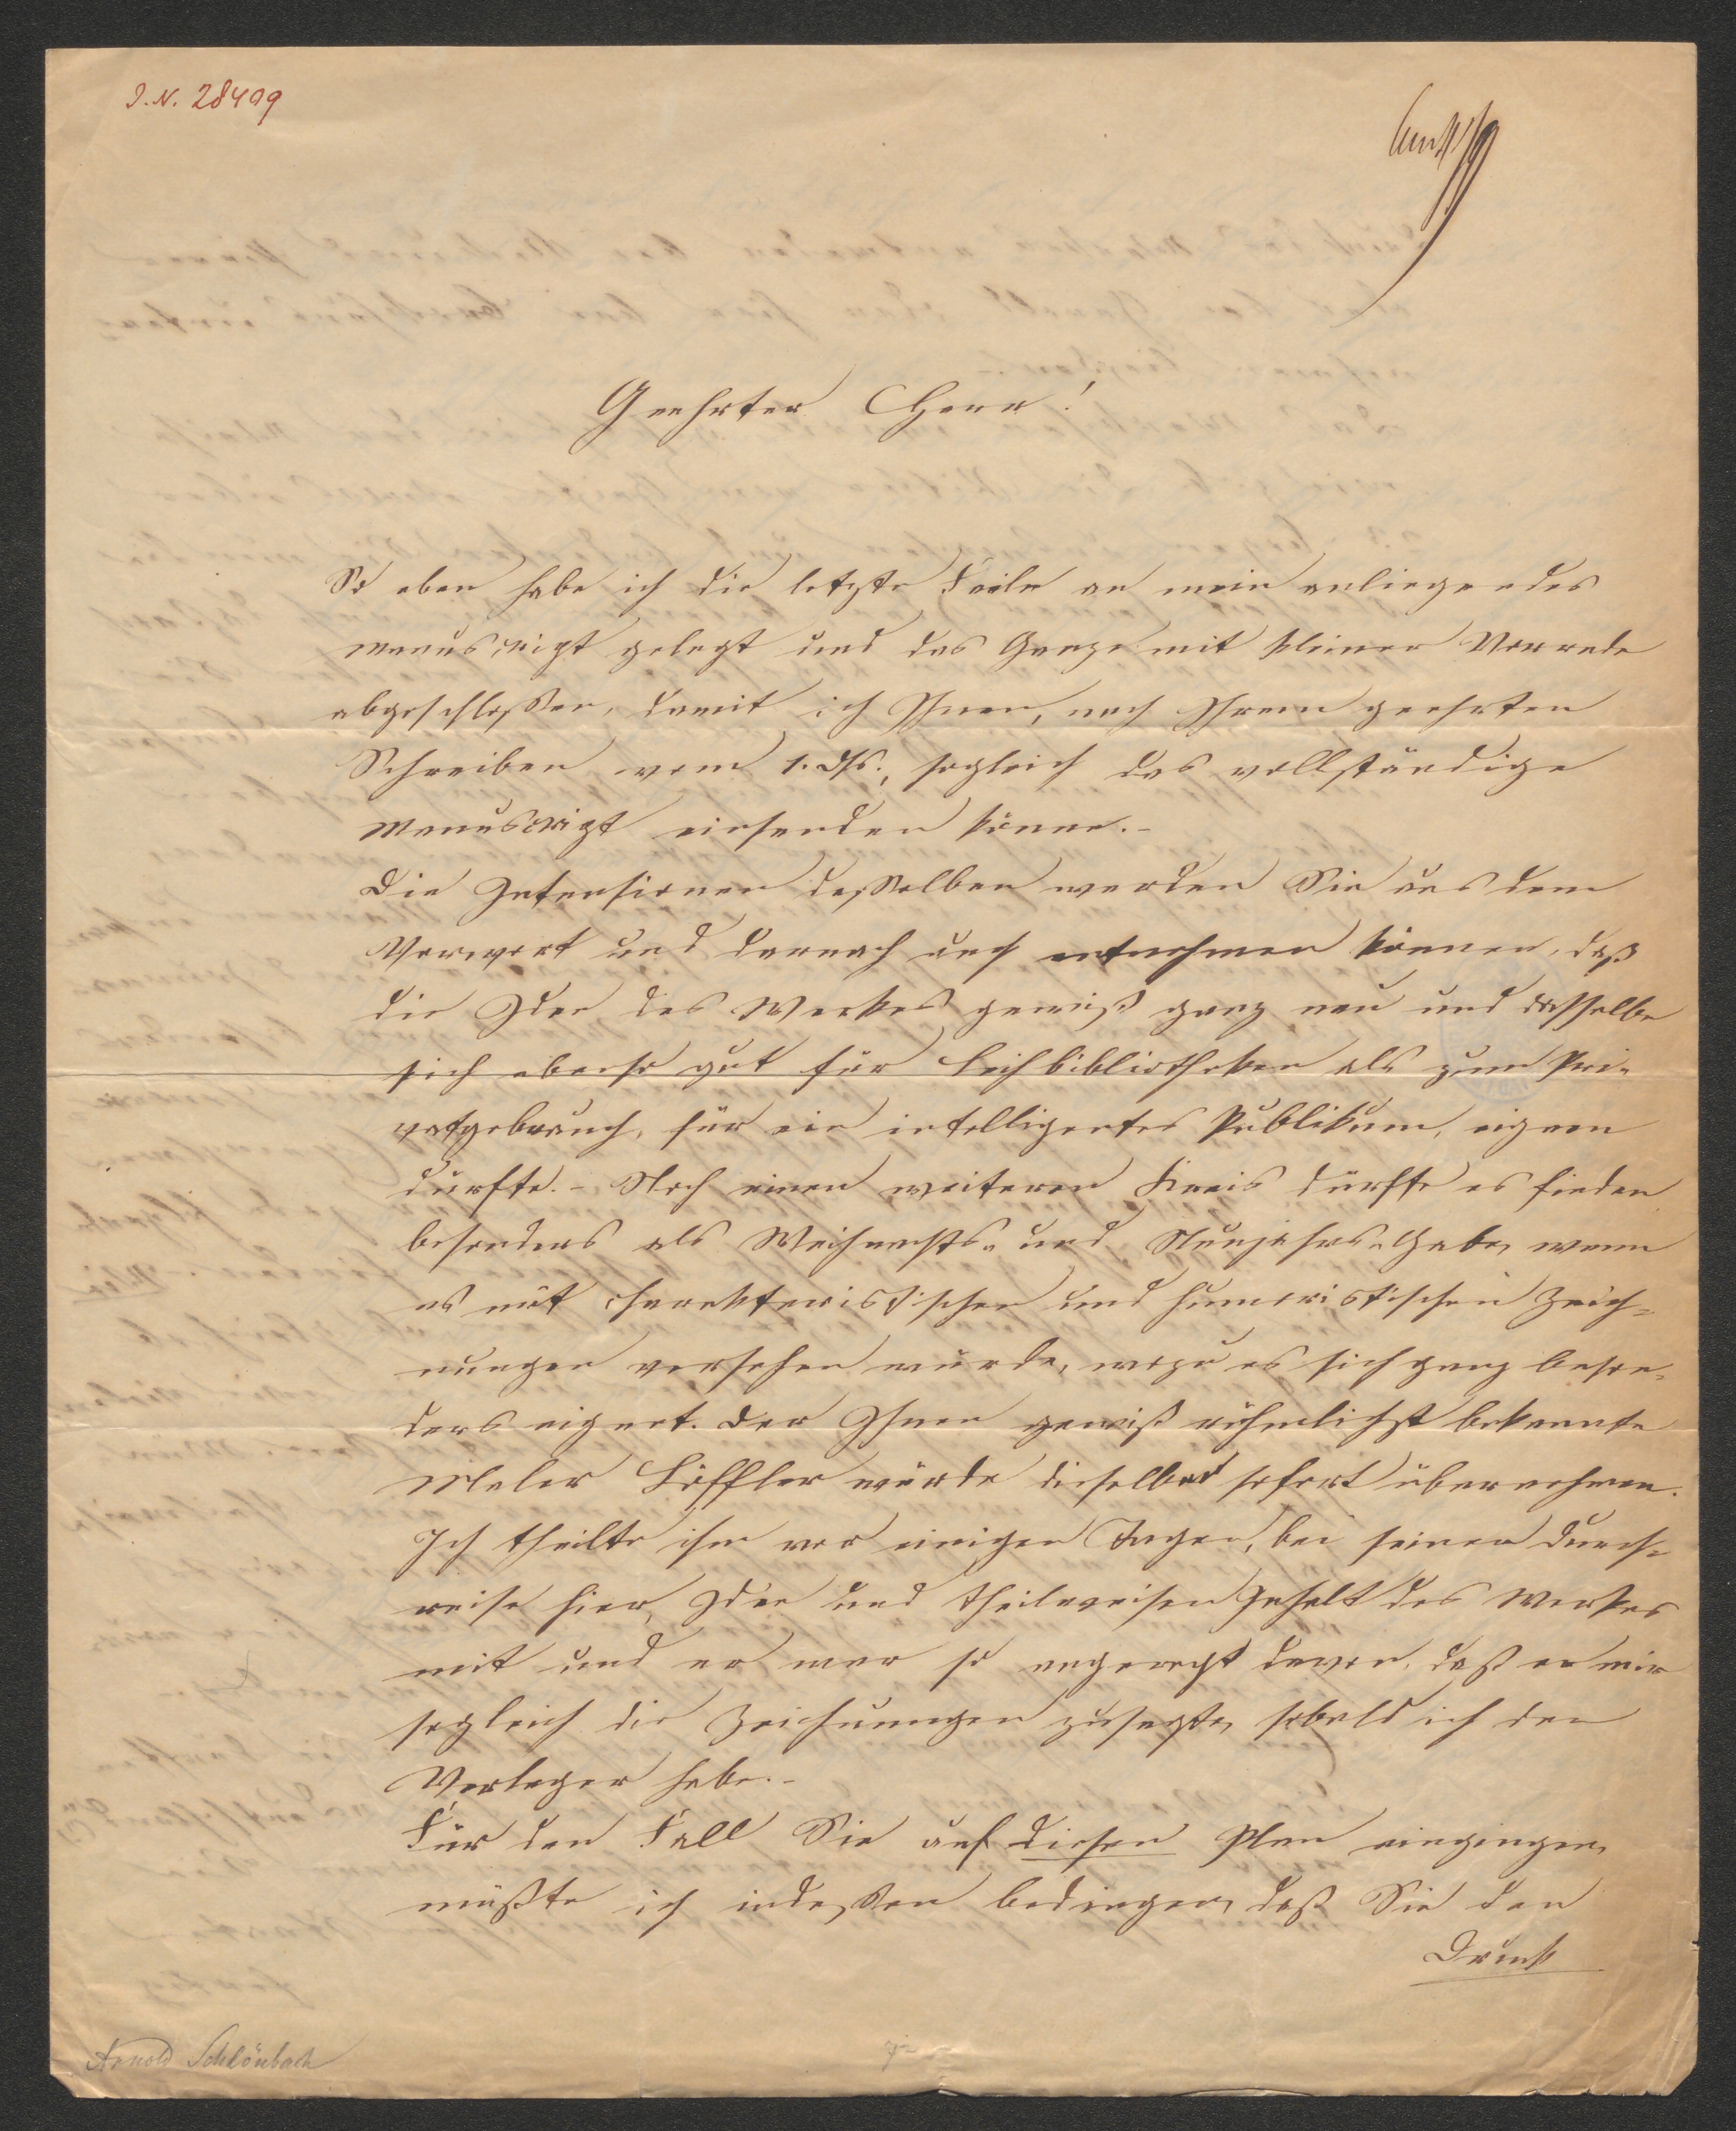 I.N. 28499
Geehrter Herr!
So eben habe ich die letzte Feile an mein anliegendes
Manuscript gelegt und das Ganze mit kleiner Vorrede
abgeschloßen, damit ich Ihnen, nach Ihrem geehrten
Schreiben vom 1. ds., sogleich das vollständige
Manuscript einsenden könne.-
Die Intensionen desselben werden Sie aus dem
Vorwort und darnach auch entnehmen können, daß
die Idee des Werkes gewiß ganz neu und dasselbe
sich ebenso gut für Leihbibliotheken als zum Pri-
vatgebrauch, für ein intelligentes Publikum, eignen
dürfte.- Noch einen weiteren Kreis dürfte es finden
besonders als Weihnachts- und Neujahrs-Gabe, wenn
es mit charakteristischen und humoristischen Zeich-
nungen versehen würde, wozu es sich ganz beson-
ders eignet. Der Ihnen gewiß rühmlichst bekannte
Maler Löffler würde dieselben sofort übernehmen.
Ich theilte ihm vor einigen Tagen, bei seiner Durch-
reise hier, Idee und theilweisen Inhalt des Werkes
mit und er war so angeregt davon, daß er mir
sogleich die Zeichnungen zusagte, sobald ich den
Verleger habe.-
Für den Fall Sie auf diesen Plan eingingen,
müßte ich indeßen bedingen, daß Sie den
Druck
Arnold Schlönbach